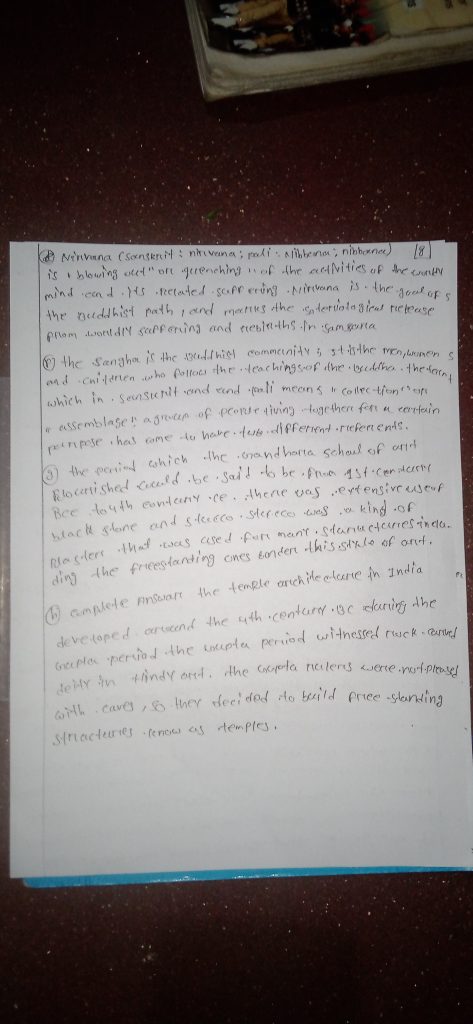 (e) Nirvana (sanskrit : nirvana ; pali : Nibbena ; nibbana) [8]
is "blowing out" or quenching" of the activities of the
mind and its related suffering. Nirvana is the goal of
the Buddhist path, and marks the release
from worldly suffering and rebirths in samsara
the Sangha is the Buddhist community ; it is the men, women
and children who follow the teachings of the Buddha. the term
which in sanskrit and and pali means "collection" or
"assemblage" a group of people living together for a certain
purpose has come to have two different referents.
(g) the period which the Gandhara school of art
flourished could be said to be from 1st century
Bce to 4th century ce. there was extensive use of
black stone and stucco. stereco was a kind of
Plaster that was used for many structures inclu-
ding the freestanding ones border this style of art.
(h) complete Answar the temple architecture in India
developed around the 4th century BC during the
Gupta period the Goupta period witnessed rock carved
deity in Hindy art. the Goupta rulers were not pleased
with caves, so they decided to build free standing
structures know as temples.